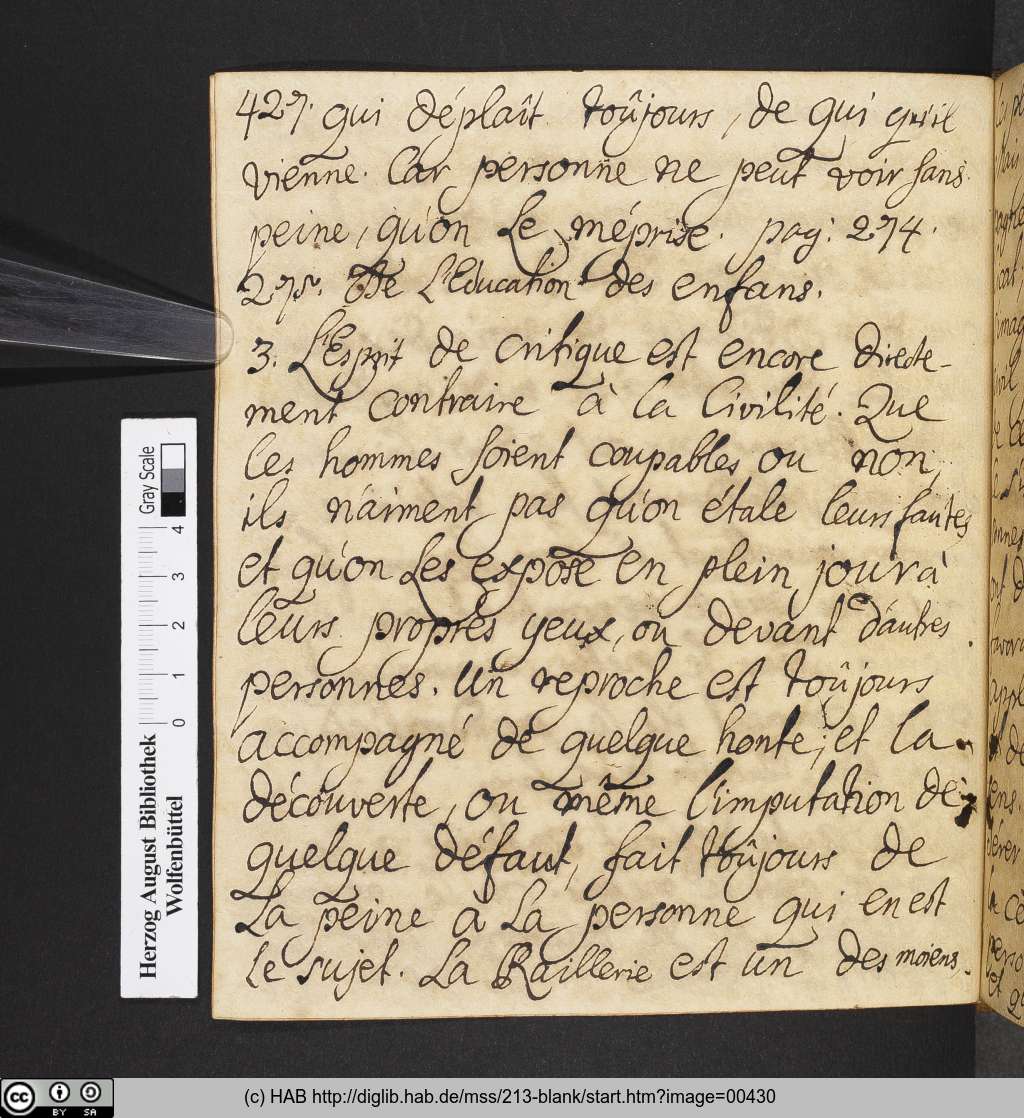 427. qui déplaît toûjours, de qui qu'il
vienne. Car personne ne peut voir sans
peine, qu'on le méprise. pag: 274.
275. De L'Education des enfans.
3. L'Esprit de critique est encore directe-
ment contraire à la Civilité. Que
les hommes soient coupables ou non,
ils n'aiment pas qu'on étale leurs fautes
et qu'on les expose en plein jour à
leurs propres yeux, ou devant d'autres
personnes. Un reproche est toûjours
accompagné de quelque honte; et la
découverte, ou même l'imputation de
quelque défaut, fait toûjours de
La peine à La personne qui en est
le sujet. La Raillerie est un des moiens
Gray Scale
4
3
2
1
0
Herzog August Bibliothek
Wolfenbüttel
cc BY SA
(c) HAB http://diglib.hab.de/mss/213-blank/start.htm?image=00430